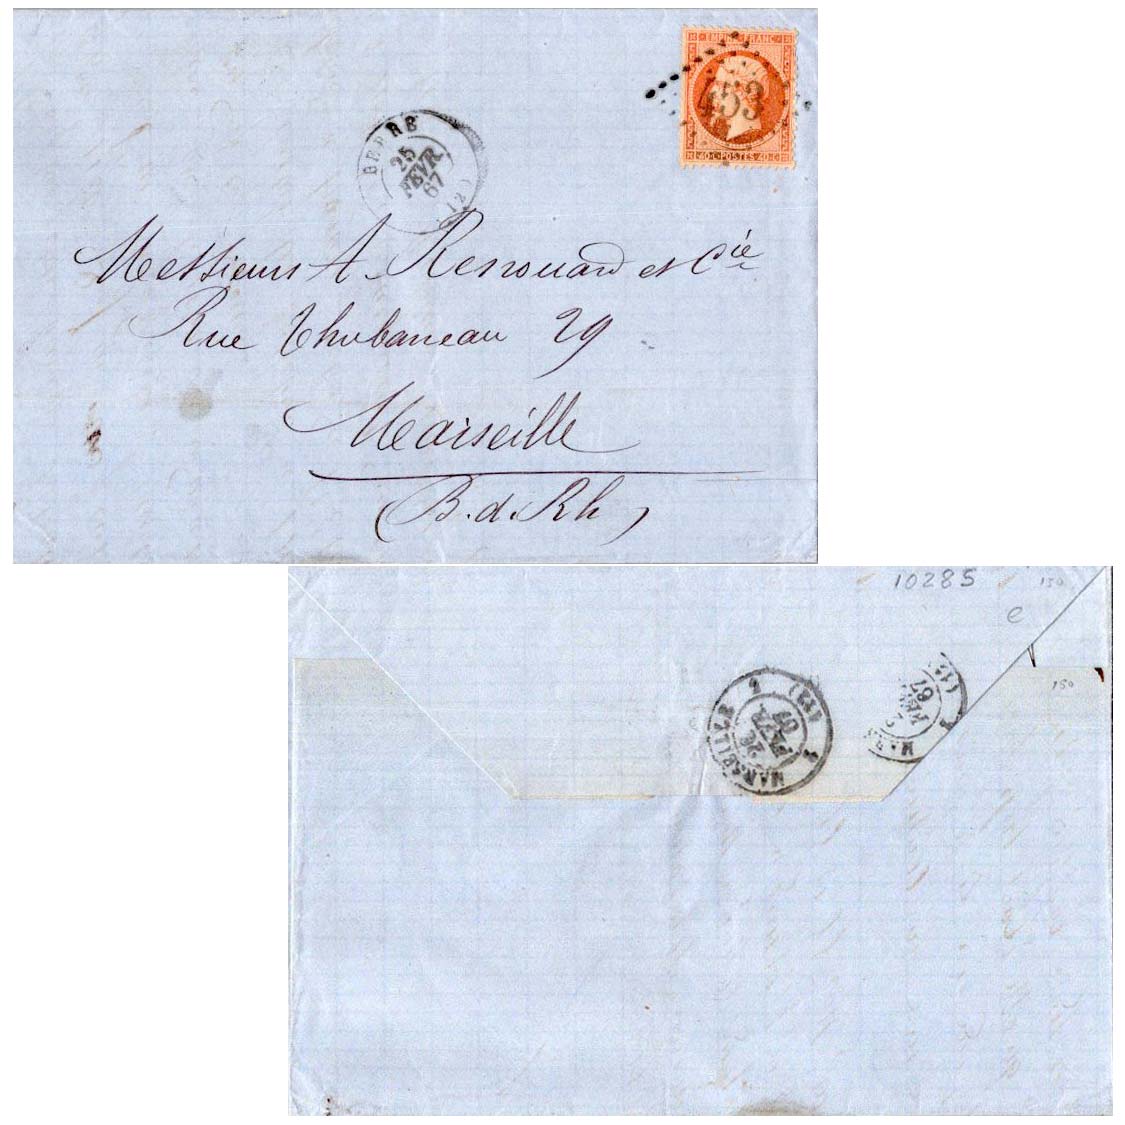 EMPIRE FRANC
453
40·C·POSTES·40·C
BERRE
25
FEVR
67
(12)
Messieurs A. Renouard et Cie
Rue Thubaneau 29
Marseille
(B. d. Rh)
10285
150
e
150
MARSEILLE
26
FEVR
67
MAR
FEVR
67